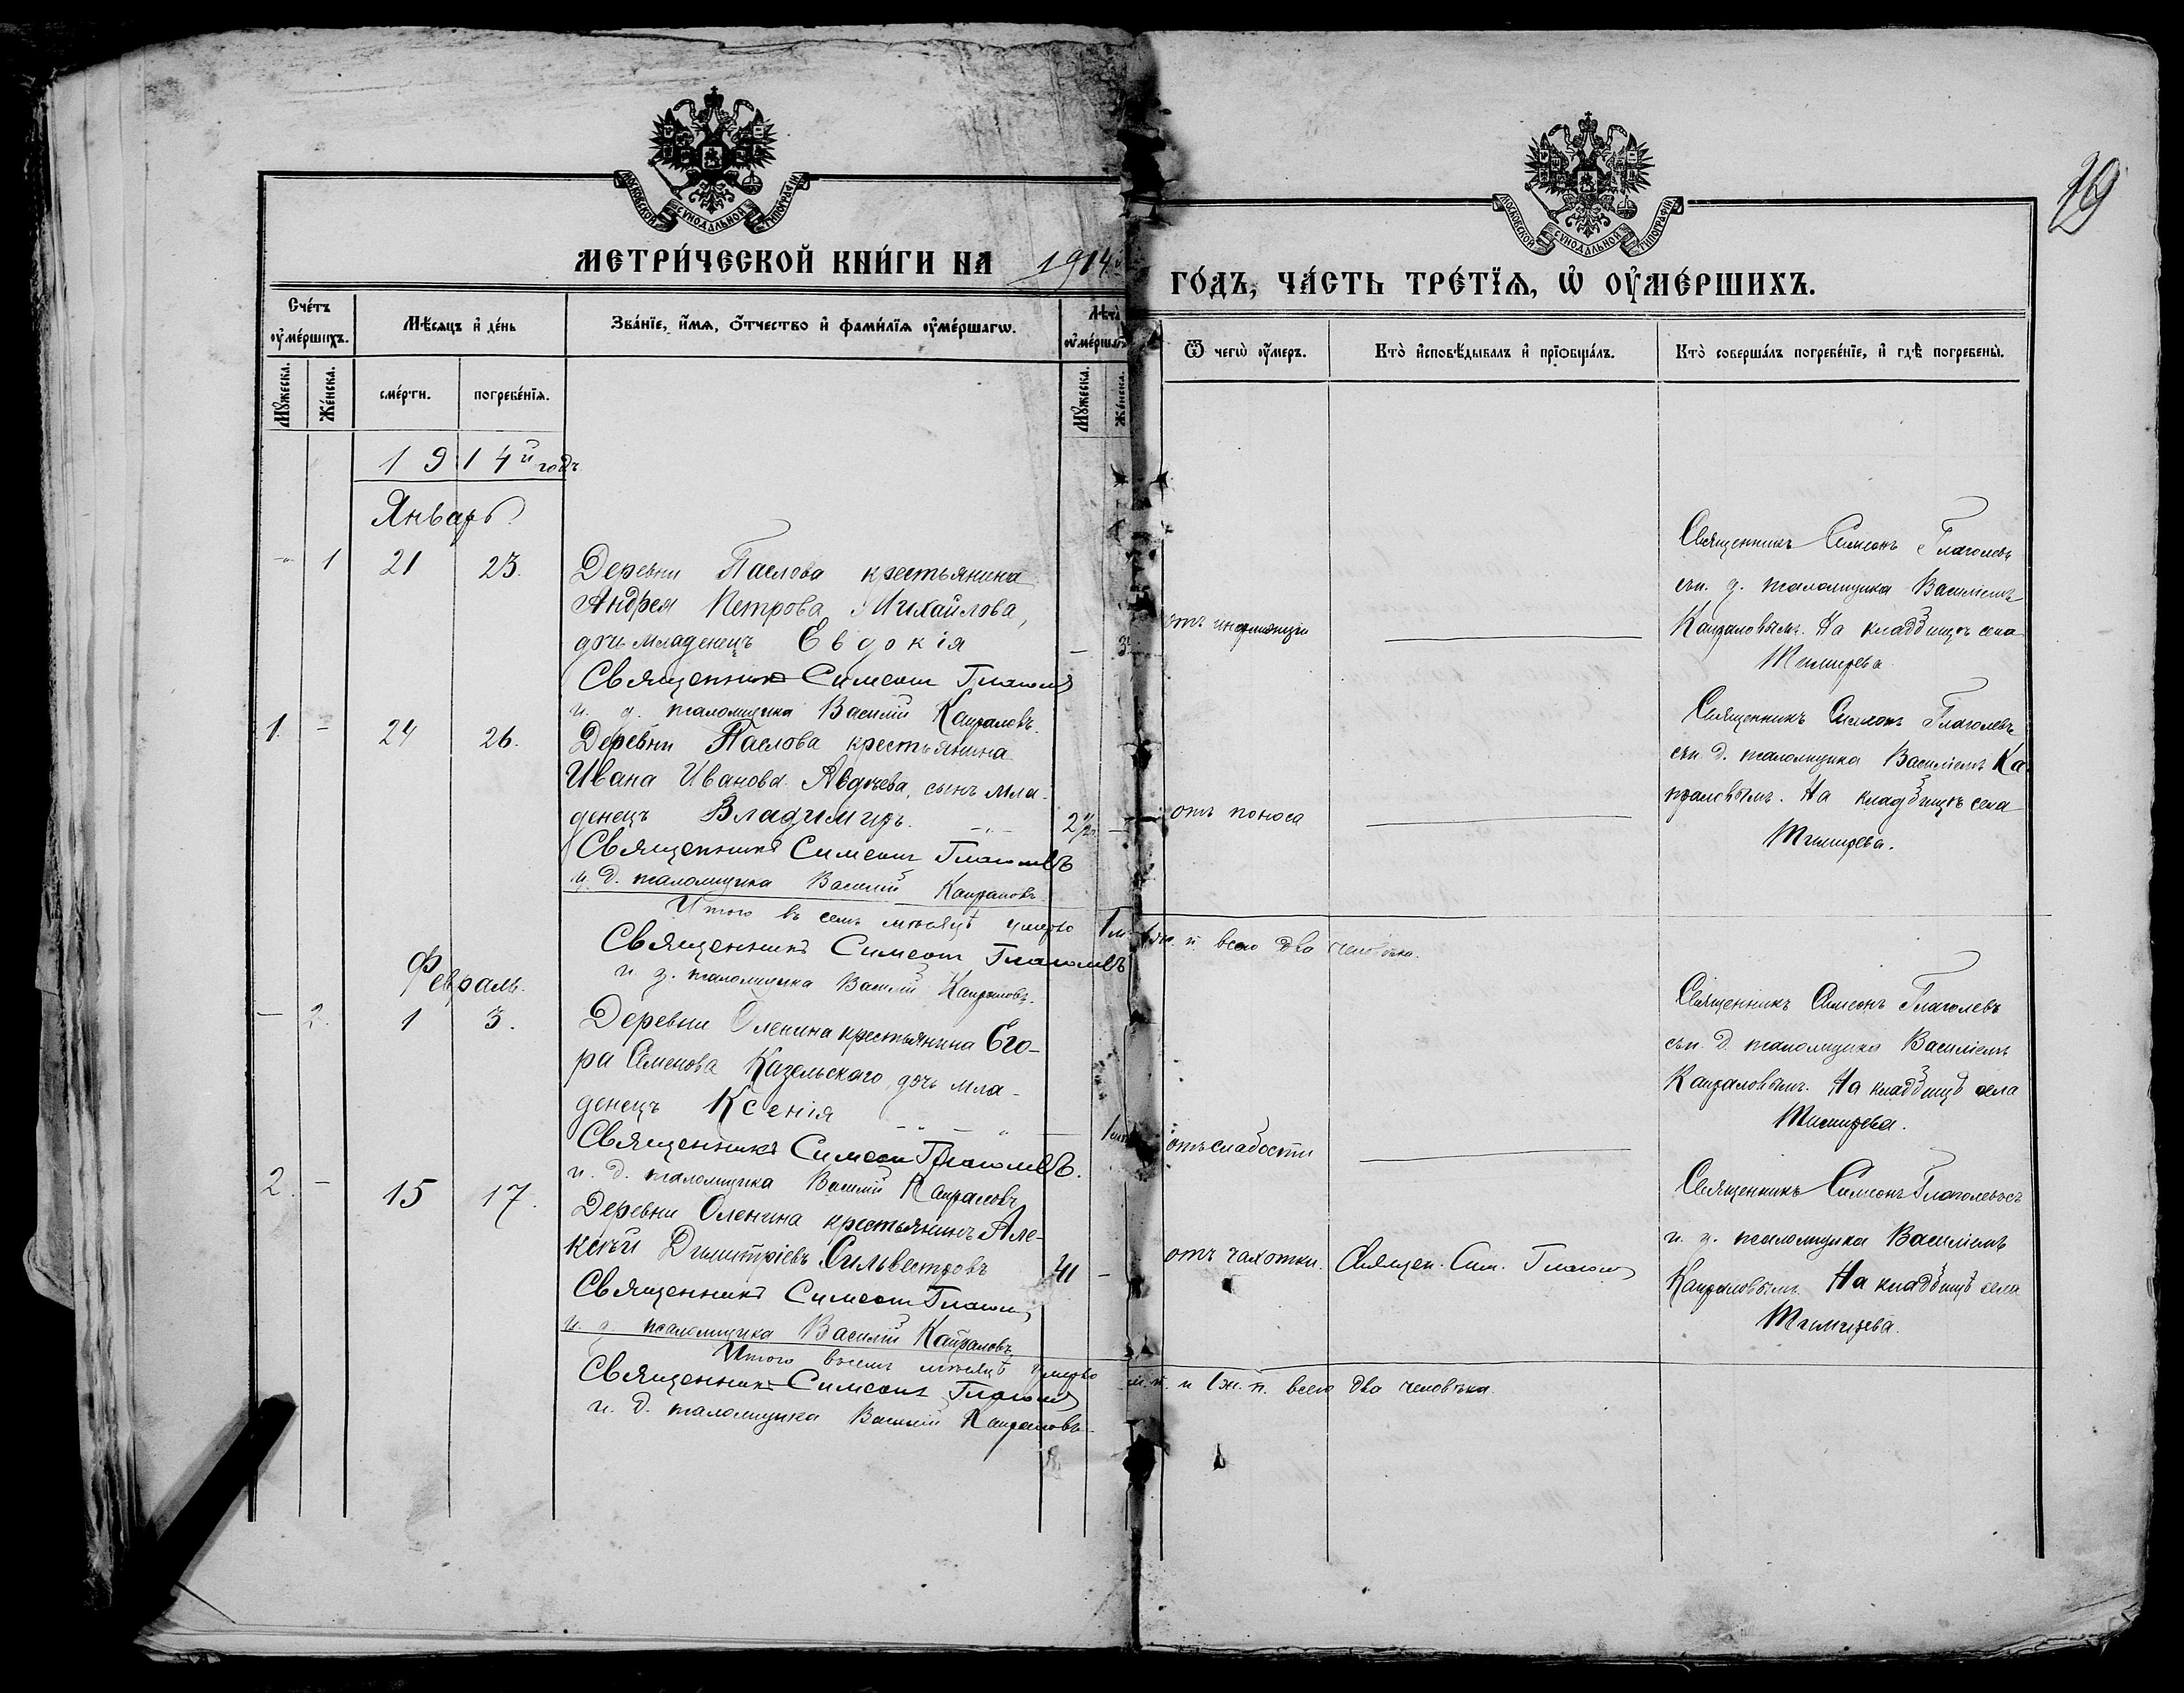 19
МОСКОВСКОЙ СѴНОДАЛЬНОЙ ТИПОГРАФІИ
МОСКОВСКОЙ СѴНОДАЛЬНОЙ ТИПОГРАФІИ
МЕТРИ́ЧЕСКОЙ КНИ́ГИ НА 1914й
ГО́ДЪ, ЧА́СТЬ ТРЕ́ТЇѦ, Ѡ҆ ОУ҆МЕ́РШИХЪ.
Сче́тъ оу҆ме́ршихъ.
Мѣ́сяцъ и҆ де́нь
Зва́нїе, и҆́мѧ, ѻ҆́тчество и҆ фами́лїѧ оу҆ме́ршагѡ.
Лѣ́та оу҆ме́ршагѡ
Ѿ чегѡ̀ оу҆́меръ.
Кто̀ и҆сповѣ́дывалъ и҆ прїѡбща́лъ.
Кто̀ соверша́лъ погребе́нїе, и҆ гдѣ̀ погребены̀.
Мꙋ́жеска.
Же́нска.
сме́рти.
погребе́нїѧ.
Мꙋ́жеска.
Же́нска.
1914й годъ
Январь.
- 1 21 23.
Деревни Паслова крестьянина
Андрея Петрова Михайлова,
дочь младенецъ Евдокія
- 3
Священникъ Симеонъ Глаголев
и. д. псаломщика Василій Капраловъ.
отъ инфлюэнціи
Священникъ Симеонъ Глаголевъ
съ и. д. псаломщика Василіемъ
Капраловымъ. На кладбищѣ села
Тимирева.
1. - 24 26.
Деревни Паслова крестьянина
Ивана Иванова Авдѣева, сынъ мла-
денецъ Владимиръ.
Священникъ Симеонъ Глаголевъ
и. д. псаломщика Василій Капраловъ.
отъ поноса
Священникъ Симеонъ Глаголевъ
съ и. д. псаломщика Василіемъ Ка-
праловымъ. На кладбищѣ села
Тимирева.
Итого въ семъ мѣсяцѣ умерло 1 м. 1 ж. п. всего два человѣка.
Священникъ Симеонъ Глаголевъ
и д. псаломщика Василій Капраловъ.
Февраль.
- 2. 1 3.
Деревни Оленина крестьянина Его-
ра Семенова Казельскаго, дочь мла-
денецъ Ксенія
Священникъ Симеонъ Глаголевъ.
и. д. псаломщика Василій Капраловъ
отъ слабости
Священникъ Симеонъ Глаголевъ
съ и. д. псаломщика Василіемъ
Капраловымъ. На кладбищѣ села
Тимирева.
2. - 15 17.
Деревни Оленина крестьянинъ Але-
ксѣй Димитріевъ Сильвестровъ
41 -
Священникъ Симеонъ Глаголев
и. д. псаломщика Василій Капраловъ
отъ чахотки.
Священ. Сим. Глаголев
Священникъ Симеонъ Глаголевъ съ
и. д. псаломщика Василіемъ
Капраловымъ. На кладбищѣ села
Тимирева.
Итого въ семъ мѣсяцѣ умерло м. п. и 1 ж. п. всего два человѣка.
Священникъ Симеонъ Глаголев
и. д. псаломщика Василій Капраловъ.